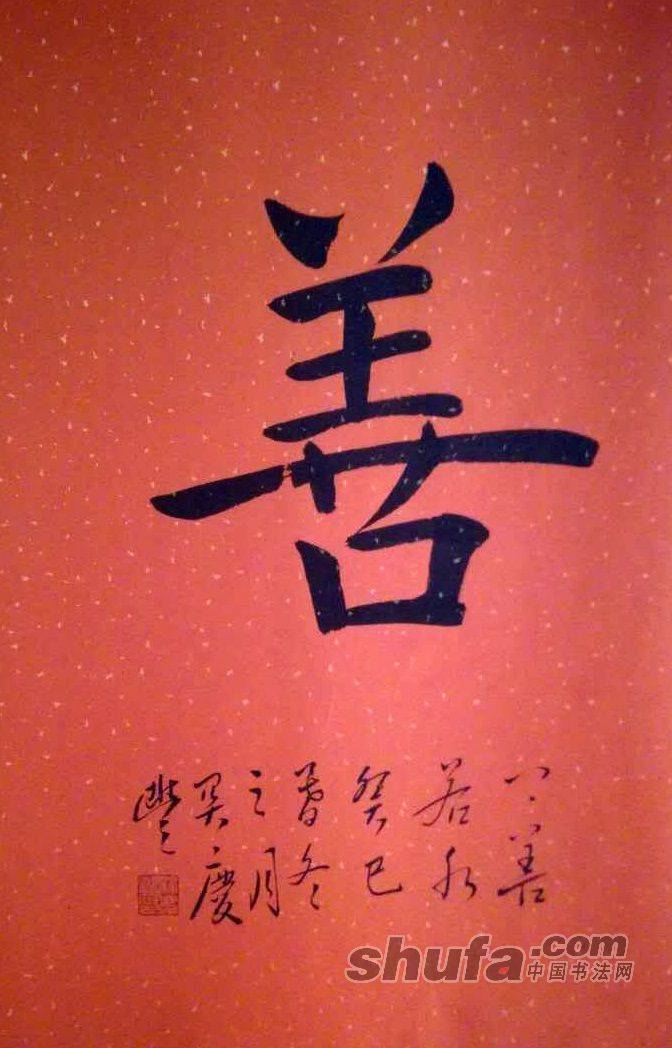 善
上善
若水
癸巳
暮冬
之月
吴庆
丰
shufa.com
中国书法网